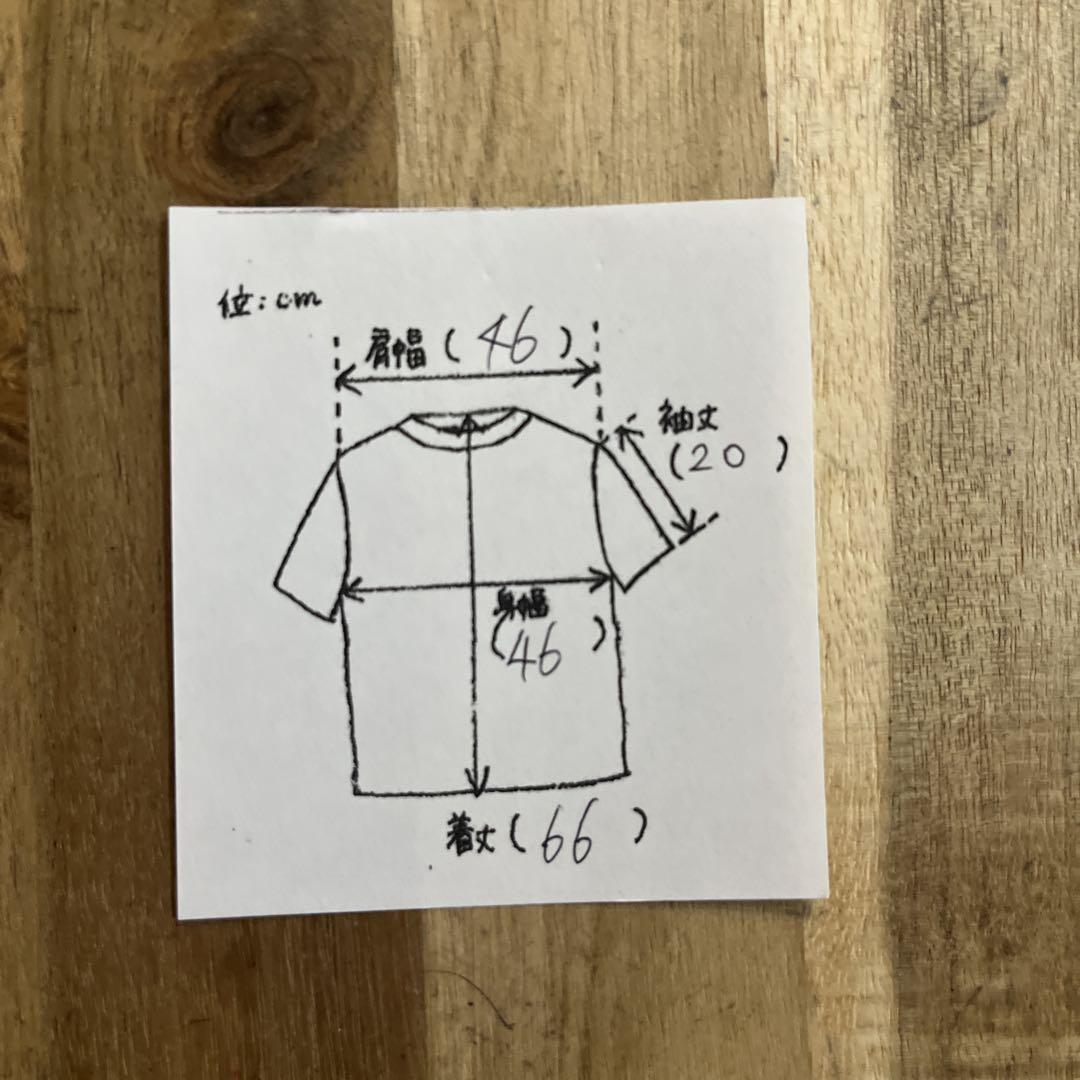 位:cm
肩幅(46)
袖丈
(20)
身幅
(46)
着丈(66)